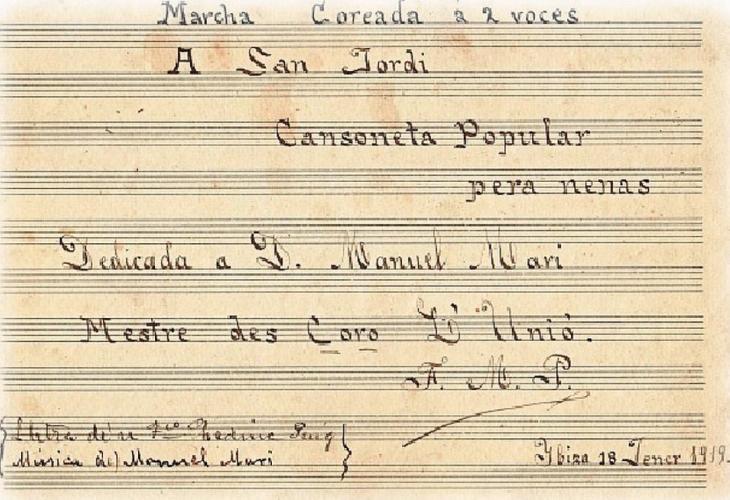 Marcha Coreada à 2 voces
A San Jordi
Cansoneta Popular
pera nenas
Dedicada a D. Manuel Mari
Mestre des Coro L'Unió.
F. M. P.
Lletra de'n Fco Puig
Música de) Manuel Mari
Ybiza 18 Jener 1919.